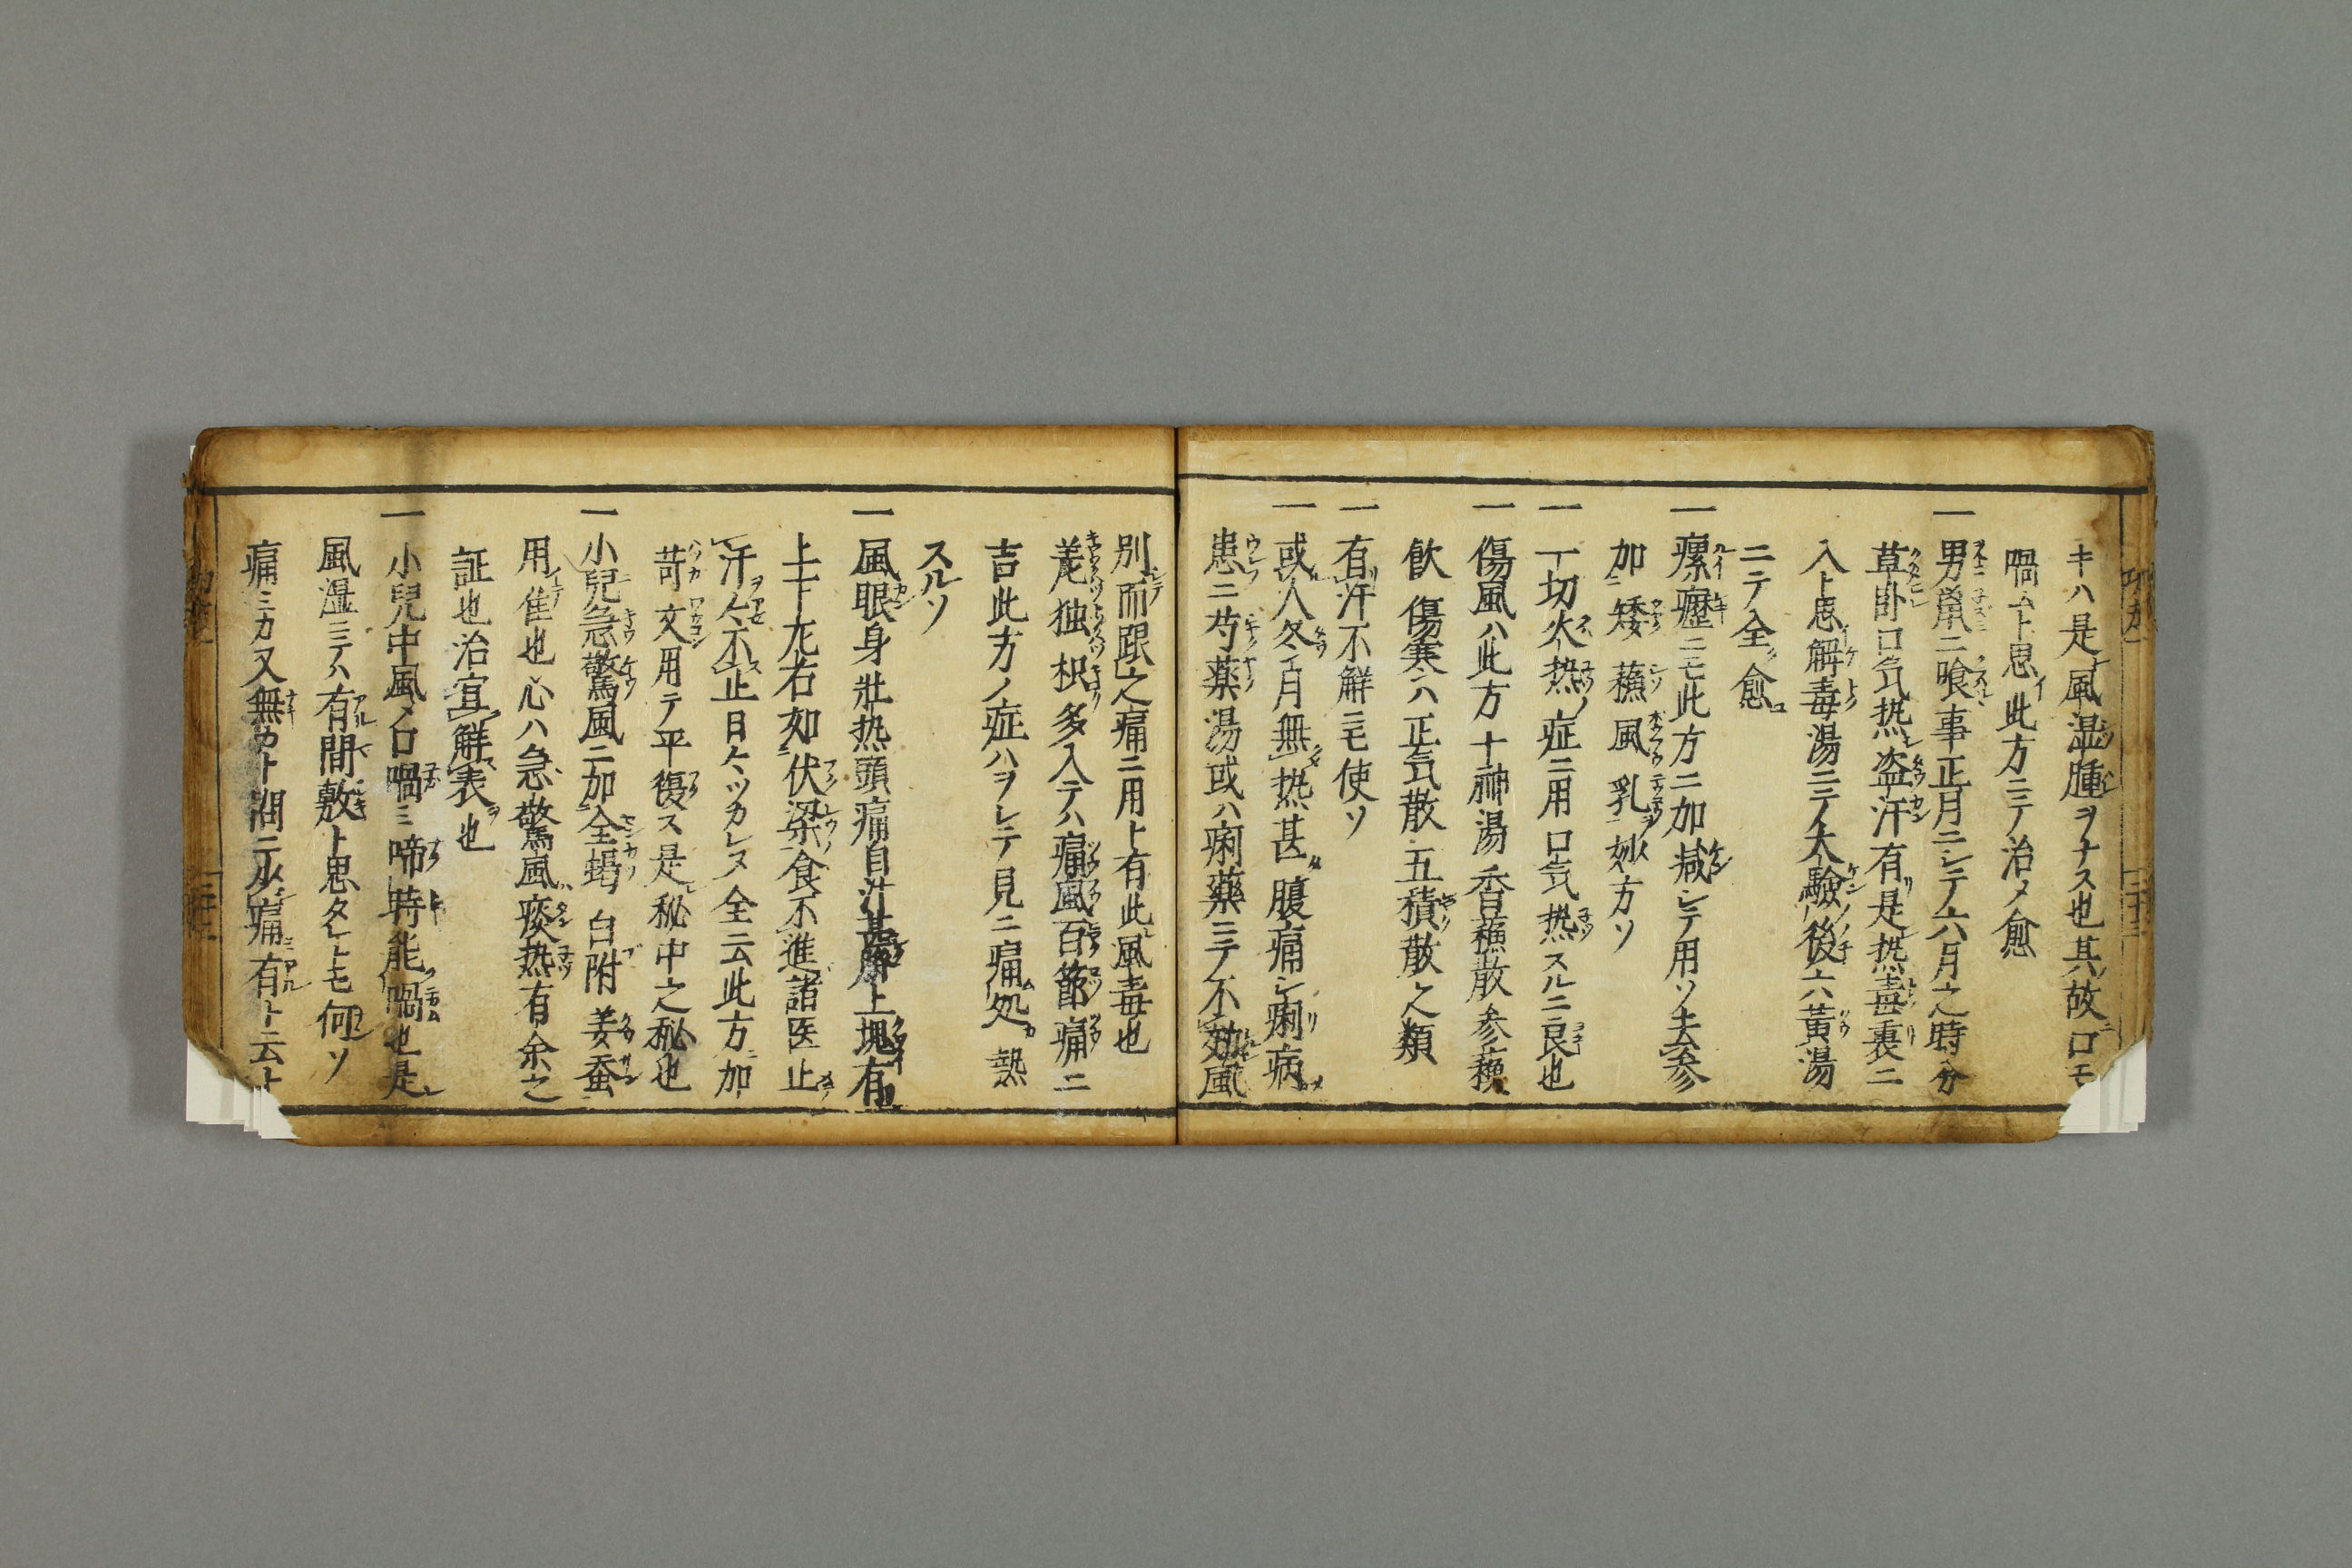 キハ是風湿腫ヲナス也其故口モ
喎ムト思此方ニテ治〆愈
一男鼠ニ喰事正月ニシテ六月之時分
草卧口気热盗汗有是热毒裏ニ
入ト思解毒湯ニテ大驗後六黄湯
ニテ全愈
一瘰癧ニモ此方ニ加減シテ用ソ去参
加矮蘓風乳妙方ソ
一一切火热症ニ用口気热スルニ良也
一傷風ハ此方十神湯香蘓散参蘓
飲傷寒ハ正気散五積散之類
一有汗不解ニモ使ソ
一或人冬月無热甚腹痛シ痢病
患ニ芍薬湯或ハ痢藥ニテ不効風
別而踝之痛ニ用ト有此風毒也
羗独枳多入テハ痛風百節痛ニ
吉此方ノ症ハヲシテ見ニ痛処熱
スルソ
一風眼身壮热頭痛自汗甚臍上塊有
上下左右如伏梁食不進諸医止
汗𪜈不止日々ツカレヌ全云此方加
苛文用テ平復ス是秘中之秘也
一小兒急驚風ニ加全蝎白附姜蚕
用佳也心ハ急驚風痰热有余之
証也治宜解表也
一小兒中風ノ口喎ニ啼時能喎也是
風湿ニテハ有間敷ト思タレトモ何ソ
痛ニカ又無カト潤ニ必痛有ト云ト